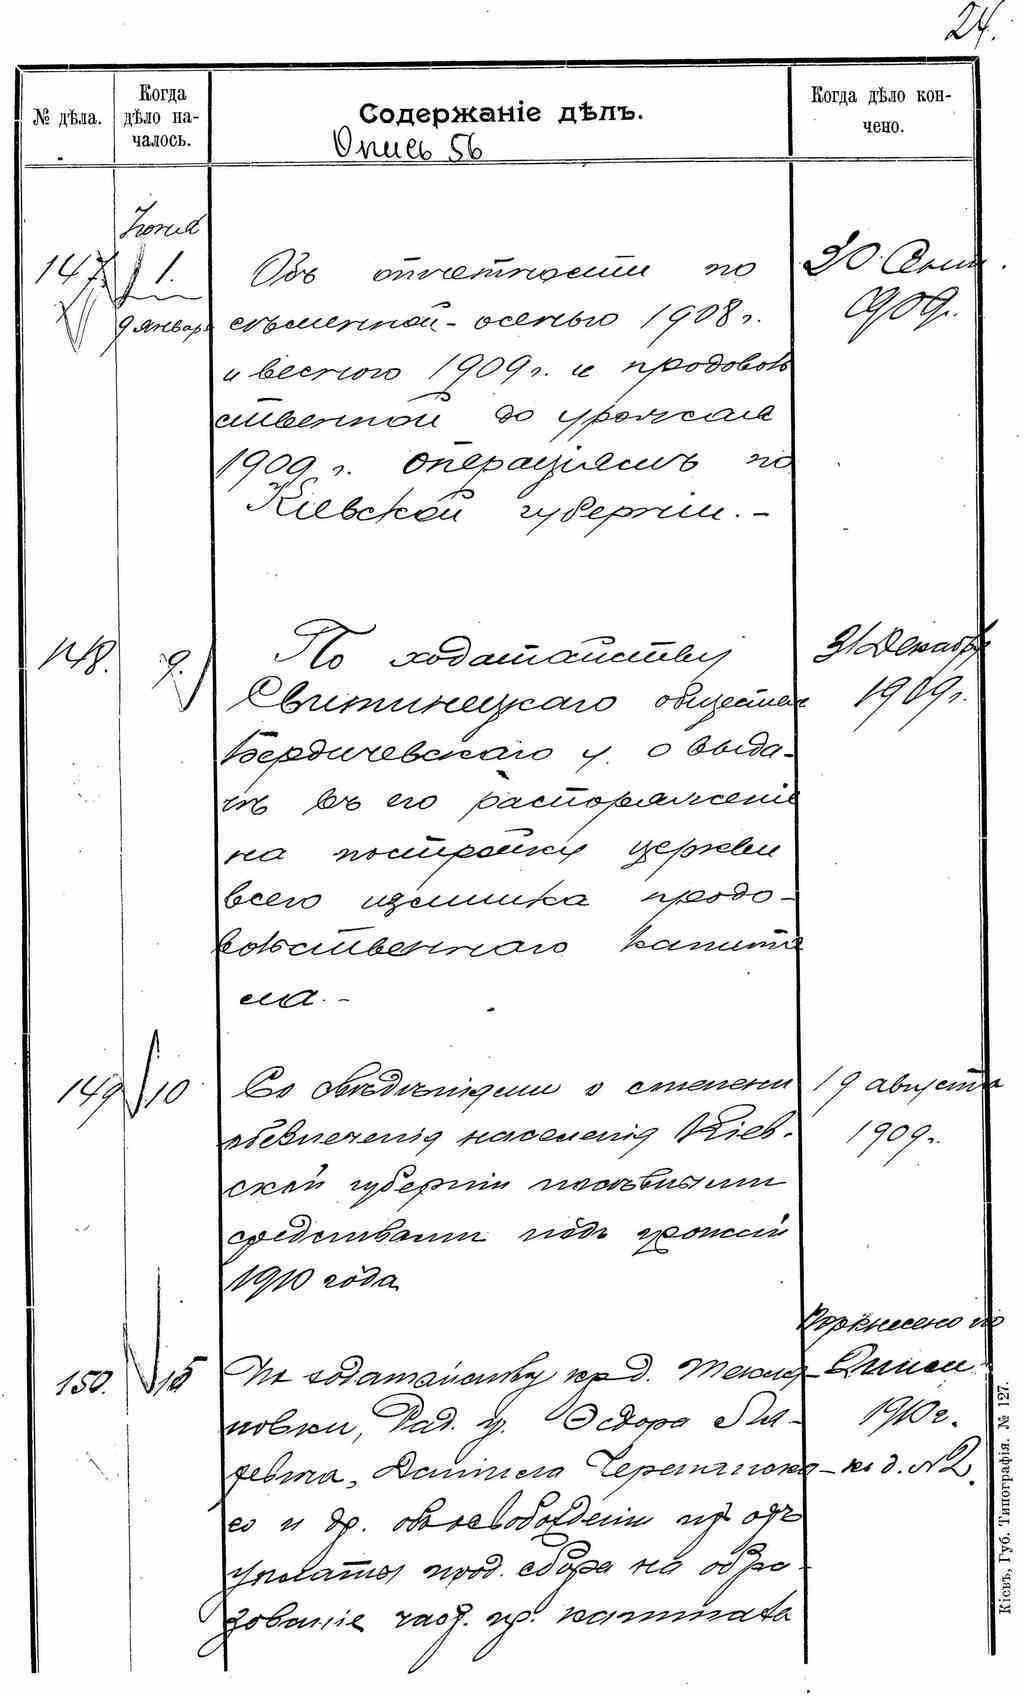 24.
№ дѣла.
Когда
дѣло на-
чалось.
Содержаніе дѣлъ.
Опись 56
Когда дѣло кон-
чено.
147. 1.
9 января
Объ отчетности по
сѣменной - осенью 1908 г.
и весною 1909 г. и продоволь
ственной до урожая
1909 г. операціямъ по
Кіевской губерніи. -
1909 г.
148. 9.
По ходатайству
Свитинецкаго обществ
Бердичевскаго у. о выда-
чѣ въ его распоряженіе
на постройку церкви
всего излишка продо-
вольственнаго капита
ла. -
31 Декабря
1909 г.
149 10
Со свѣдѣніями о степени
обезпеченія населенія Кіев-
ской губерніи посѣвными
средствами подъ урожай
1910 года
19 августа
1909 г.
150. 15
По ходатайству кр. д.
новки, Рад. у. Ѳедора
Данила
го и др. объ освобожденіи ихъ отъ
уплаты прод. сбора на обра-
зованіе част. пр. капитала
Перенесено по
Описи
1910 г.
к д. № 2.
Кіевъ, Губ. Типографія. № 127.